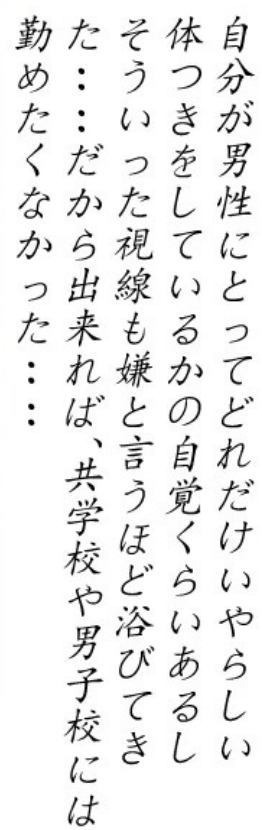 自分が男性にとってどれだけいやらしい
体つきをしているかの自覚くらいあるし
そういった視線も嫌と言うほど浴びてき
た……だから出来れば、共学校や男子校には
勤めたくなかった……